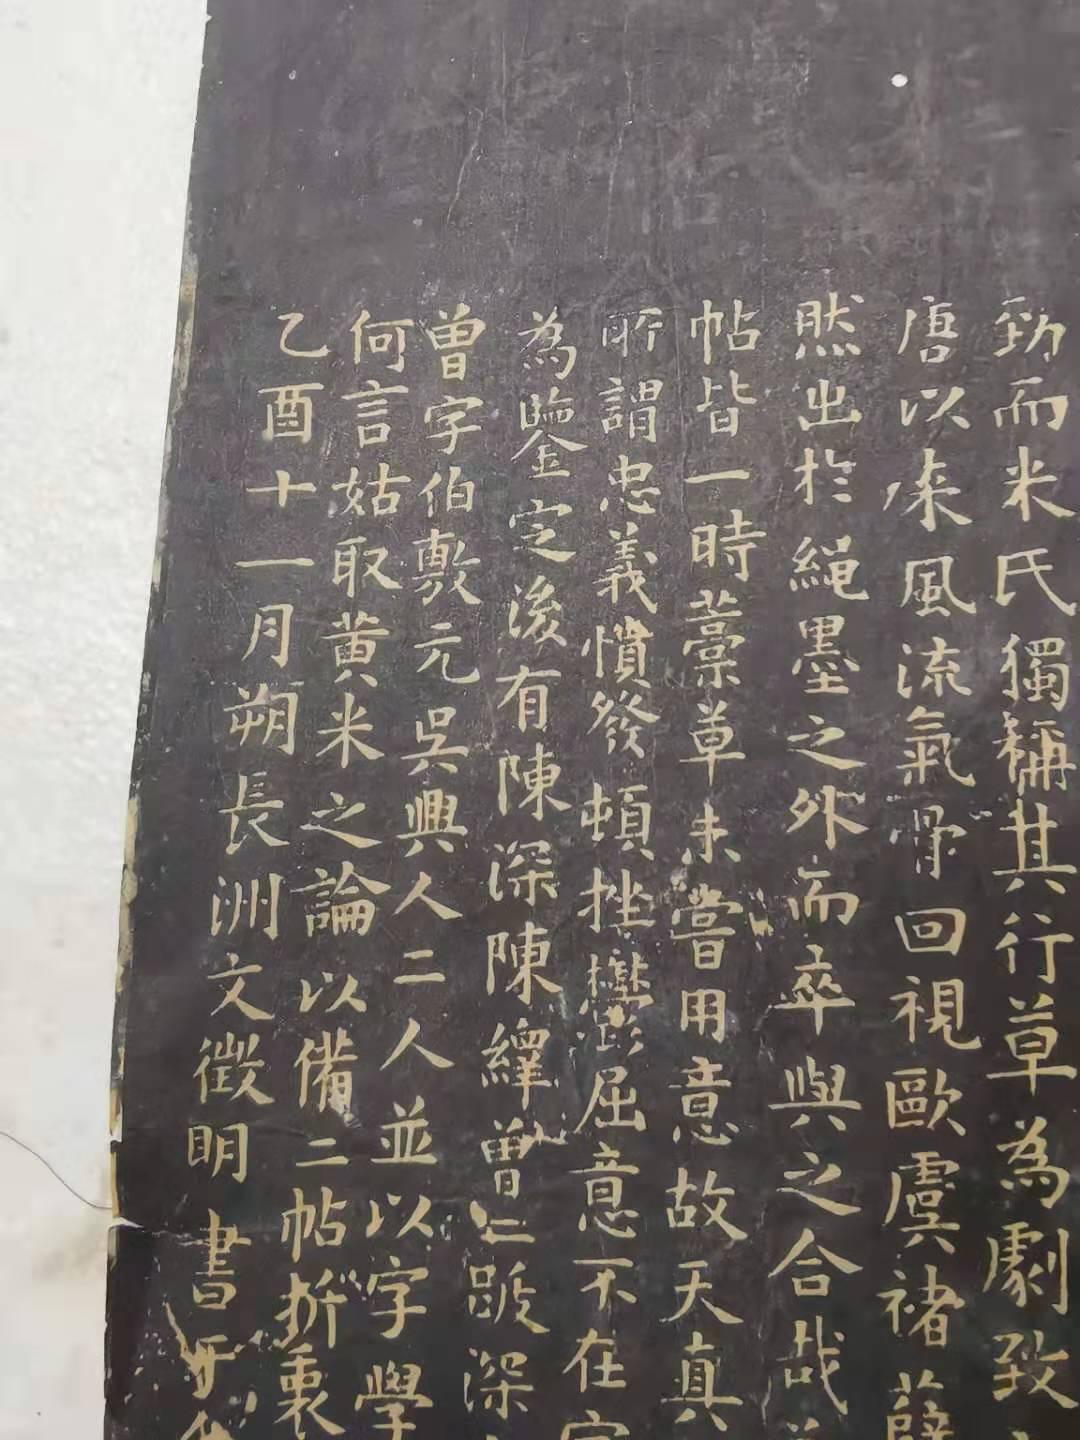 勁而米氏獨稱其行草為劇致
唐以來風流氣骨回視歐虞褚薛
然出於繩墨之外而卒與之合哉
帖皆一時藁草未嘗用意故天真
所謂忠義憤發頓挫鬱屈意不在字
為鑒定之後有陳深陳繹曾二跋深
曾字伯敷元吳興人二人並以字學
何言姑取黃米之論以備二帖折衷
乙酉十一月朔長洲文徵明書于